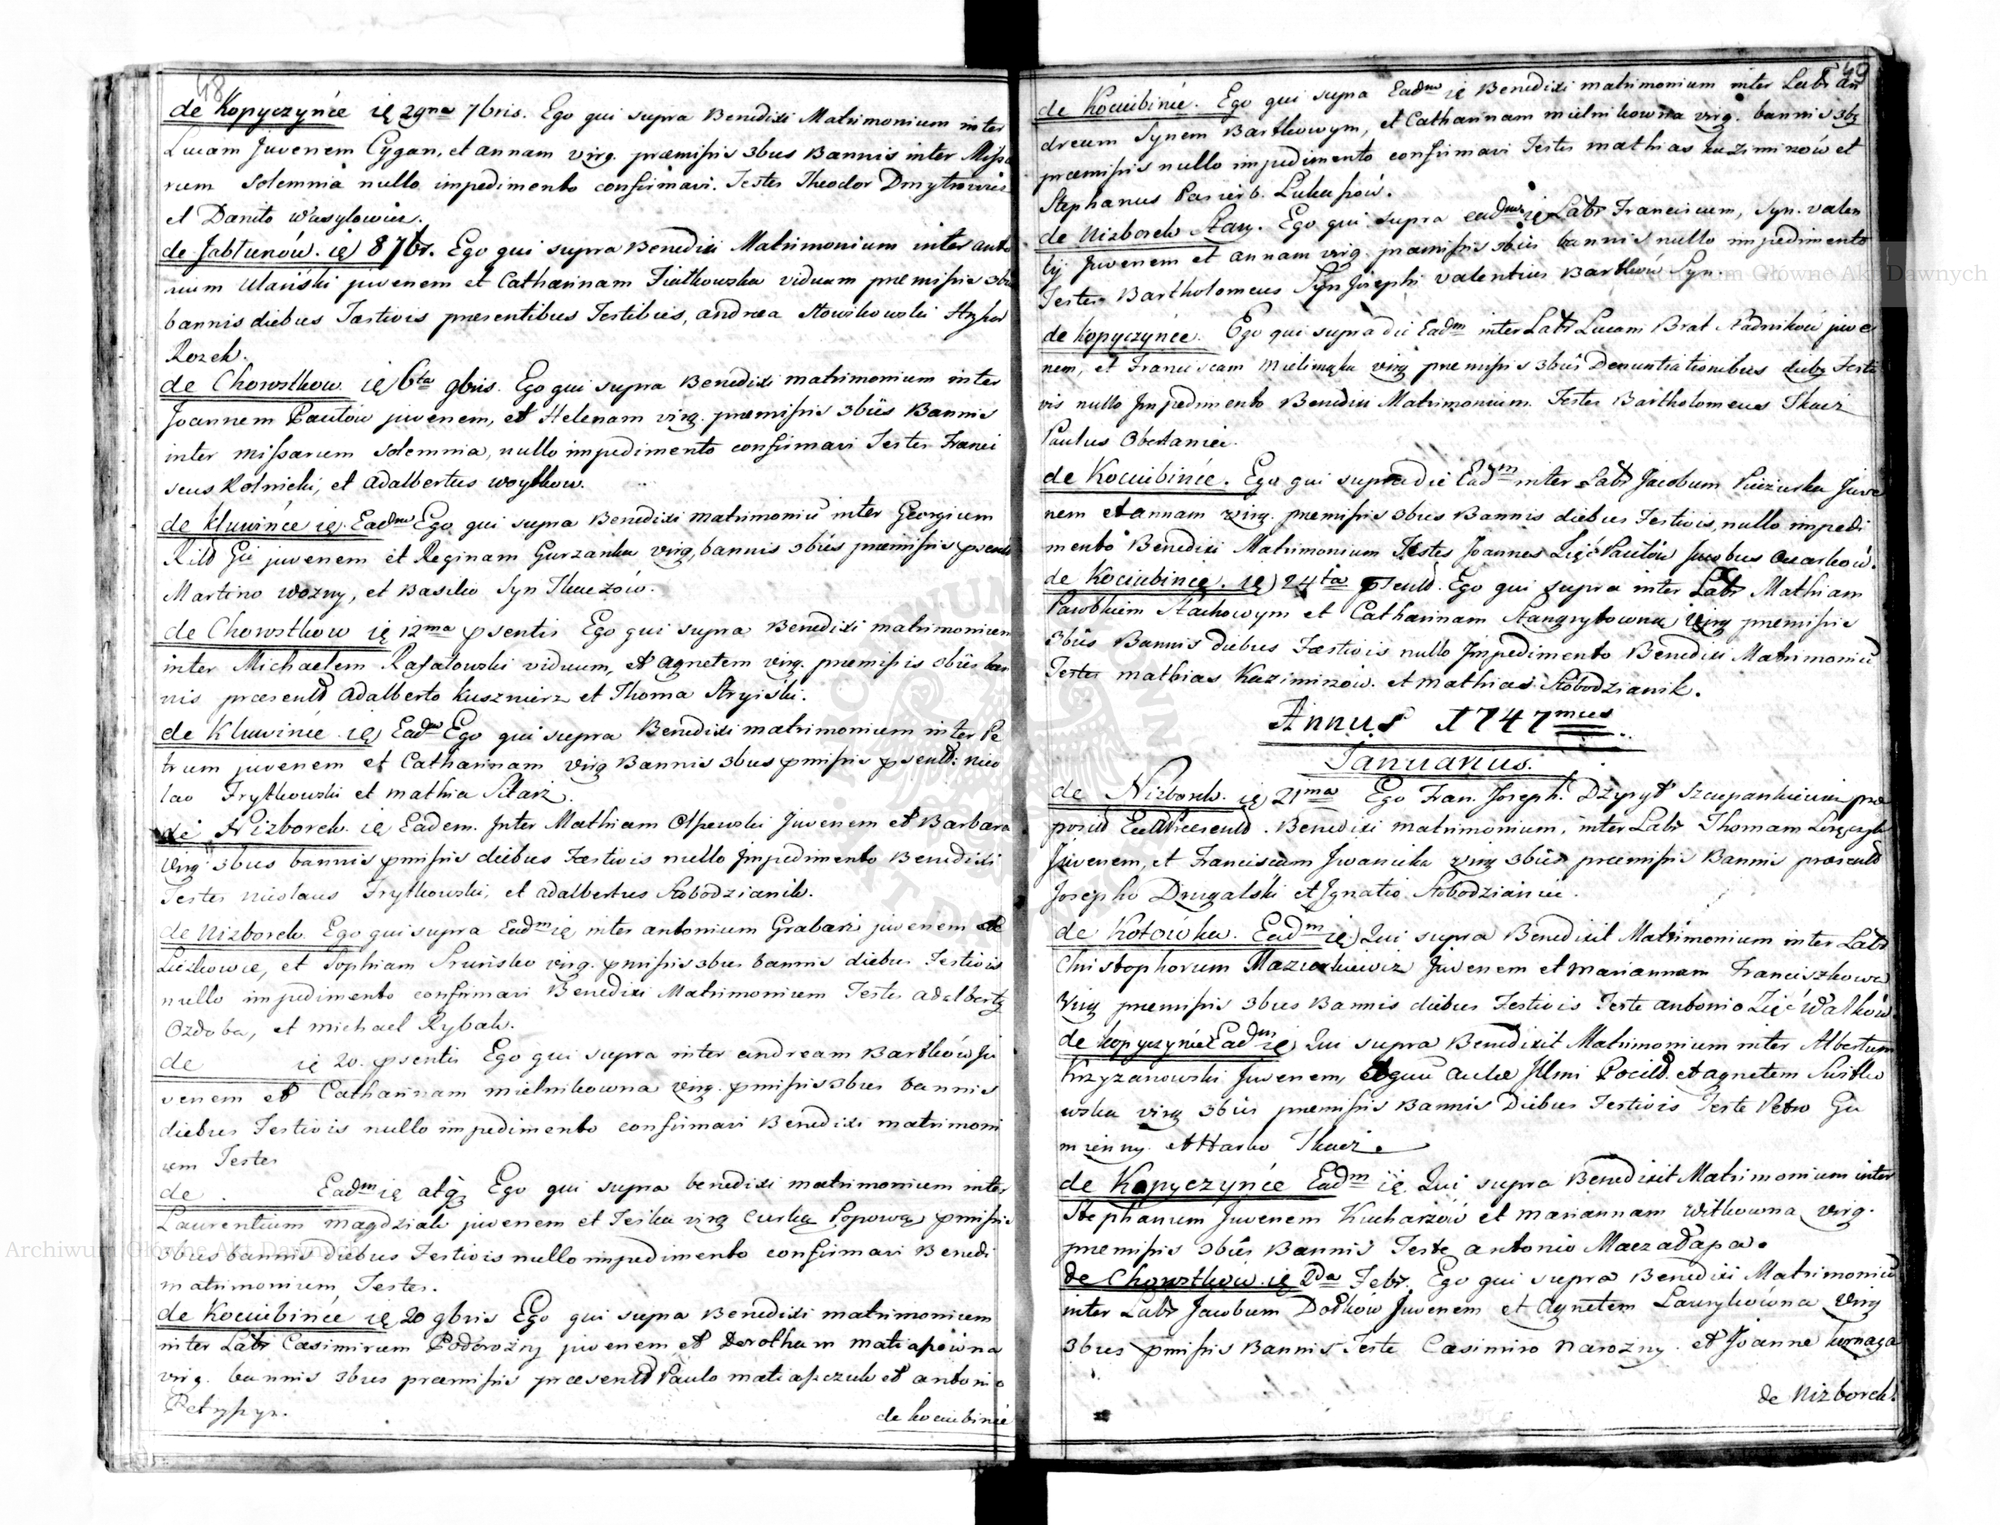 48
de Kopyczyńce ię 29na 7bris. Ego qui supra Benedixi Matrimonium inter
Lucam Juvenem Cygan, et annam virg. præmissis 3bus Bannis inter Missa
rum Solemnia nullo impedimento confirmavi. Testes Theodor Dmytrowicz
et Danito Wasylowicz.
de Jabłunów. ię 8 7br. Ego qui supra Benedixi Matrimonium inter anto
nium Ulański juvenem et Catharinam Fiatkowska viduam premissis 3bus
bannis diebus Festivis presentibus Testibus, andrea Nowikowski
Rozek.
de Chorostkow ię 6ta 9bris. Ego qui supra Benedixi matrimonium inter
Joannem Pautow juvenem, et Helenam virg. premissis 3bus Bannis
inter missarum Solemnia, nullo impedimento confirmavi Testes Franci
scus Rolnicki, et Adalbertus woytkow.
de Kluwińce ię. Eadem Ego qui supra Benedixi matrimoniū inter Georgium
juvenem et Reginam Gurzanka virg, bannis 3bus præmissis
Martino wozny, et Basilio Syn Tkaczów.
de Chorostkow ię 12ma psentis Ego qui supra Benedixi matrimonium
inter Michaelem Rafałowski viduum, et Agnetem virg. premissis 3bus ban
nis præsentb Adalberto Kuszmierz et Thoma Stryiski.
de Kluwińce ię Eadm Ego qui supra Benedixi matrimonium inter Pe
trum juvenem et Catharinam virg Bannis 3bus pmissis psentb. nico
lao Frytkowski et mathia Sitarz.
de Nizborek. ię Eadem. Inter Mathiam Olszewski Juvenem et Barbara
virg 3bus bannis pmissis diebus Festivis nullo Impedimento Benedixi
Testes Nicolaus Frytkowski, et adalbertus Słobodzianik.
de Nizborek. Ego qui supra Eadm ię inter antonium Grabarz juvenem de
Liczkowie, et Sophiam virg. pmissis 3bus bannis diebus Festivis
nullo impedimento confirmavi Benedixi Matrimonium Testes adalbertg
Ozdoba, et michael Rybak.
de ię 20. psentis Ego qui supra inter andream Bartków ju
venem et Catharinam mielnikowna virg. pmissis 3bus bannis
diebus Festivis nullo impedimento confirmavi Benedixi matrimoni
um Testes
de . Eadm ię atq Ego qui supra benedixi matrimonium inter
Laurentium magdziak juvenem et virg curkę Popową pmissis
3bus bannis diebus Festivis nullo impedimento confirmavi Benedi
matrimonium, Testes.
de Kociubińce ię 20 9bris Ego qui supra Benedixi matrimonium
inter Labr Casimirum Podorozny juvenem et Dorotham matiaszówna
virg. bannis 3bus præmissis præsentb Paulo matiaszczuk et antonio
Petryszyn.
de kociubińce
49
de Kociubińce. Ego qui supra Eadm ię Benedixi matrimonium inter Labr An
dreum Synem Bartkowym, et Catharinam mielnikowna virg. bannis 3bg
præmissis nullo impedimento confirmavi Testes mathias Kazimirzów et
Stephanus Pasierb. Łukaszów.
de Nizborek Stary. Ego qui supra eadm ię Labr Franciscum, Syn. valen
tij Juvenem et annam virg. præmissis 3bus bannis nullo impedimento
Testes Bartholomeus Syn Josephi valentius Bartków Syn.
de Kopyczyńce. Ego qui supra die Eadm inter Labr Lucam Brat Radnikow juve
nem, et Franciscam virg premissis 3bus Denuntiationibus diebg Festi
vis nullo Impedimento Benedixi Matrimonium. Testes Bartholomeus Tkacz
Paulus Obertaniec.
de Kociubińce. Ego qui supra die Eadm inter Labr Jacobum Pieczurka Juve
nem et annam virg. premissis 3bus Bannis diebus Festivis, nullo impedi
mento Benedixi Matrimonium Testes Joannes Zięć Pautów Jacobus Owarków.
de Kociubińce. ię 24ta psentb. Ego qui supra inter Labr Mathiam
Parobkiem Stachowym et Catharinam Stangrytowna virg premissis
3bus Bannis diebus Festivis nullo Impedimento Benedixi Matrimoniū
Testes mathias Kazimirzów. et mathias Słobodzianik.
Annus 1747mus
Januarius.
de Nizborek. ię 21ma Ego Fran. Joseph. Szczepankiewicz præ
posid Benedixi matrimonium, inter Labr Thomam
Juvenem, et Franciscam Iwanicka virg 3bus præmissis Bannis præsentb
Josepho Drugalski et Ignatio Słobodzianic.
de Kotówka. Eadm ię Qui supra Benedixit Matrimonium inter Labr
Christophorum Mazurkiewicz Juvenem et mariannam Franciszkowa
Virg premissis 3bus Bannis diebus Festivis Teste antonio Zięć Wałków
de kopyczyńce Eadm ię Qui supra Benedixit Matrimonium inter Albertum
Krzyzanowski Juvenem, Aulæ Illmi et agnetem Switko
wska virg 3bus premissis Bannis Diebus Festivis Teste Petro Gu
mienny. et Harko Tkacz.
de Kopyczyńce Eadm ię Qui supra Benedixit Matrimonium inter
Stephanum Juvenem Kucharzów et mariannam witkowna virg.
premissis 3bus Bannis Teste antonio Maczadapa.
de Chorostków. ię 2da Febr. Ego qui supra Benedixi Matrimoniū
inter Labr Jacobum Dołków Juvenem et Agnetem Laurykowna virg
3bus pmissis Bannis Teste Casimiro Narozny. et Joanne kornaga
de Nizborek.
Archiwum Główne Akt Dawnych